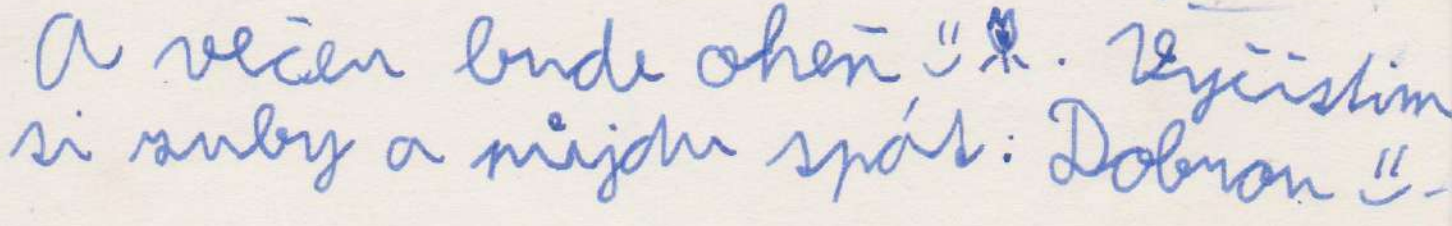 A večer bude oheň. Vyčistim
si zuby a půjdu spát: Dobrou